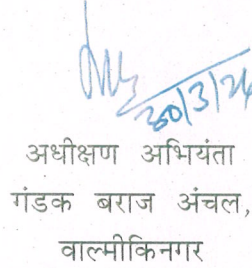 30/3/24
अधीक्षण अभियंता
गंडक बराज अंचल,
वाल्मीकिनगर